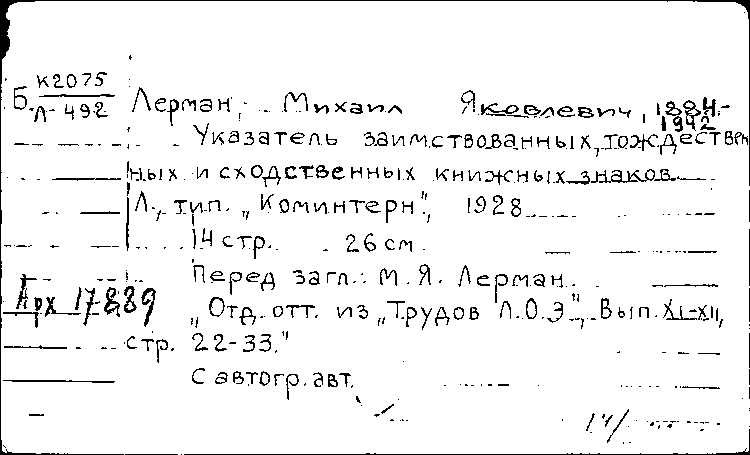 Б. К2075
Л-492
Лерман, Михаил Яковлевич, 1884-
1942
Указатель заимствованных, тождествен
ных и сходственных книжных знаков
Л., тип. „Коминтерн", 1928
14 стр. 26 см.
Перед загл.: М.Я. Лерман.
Арх 17889
„Отд. отт. из „Трудов Л.О.Э.", Вып. XI-XII,
стр. 22-33."
С автогр. авт.
14/